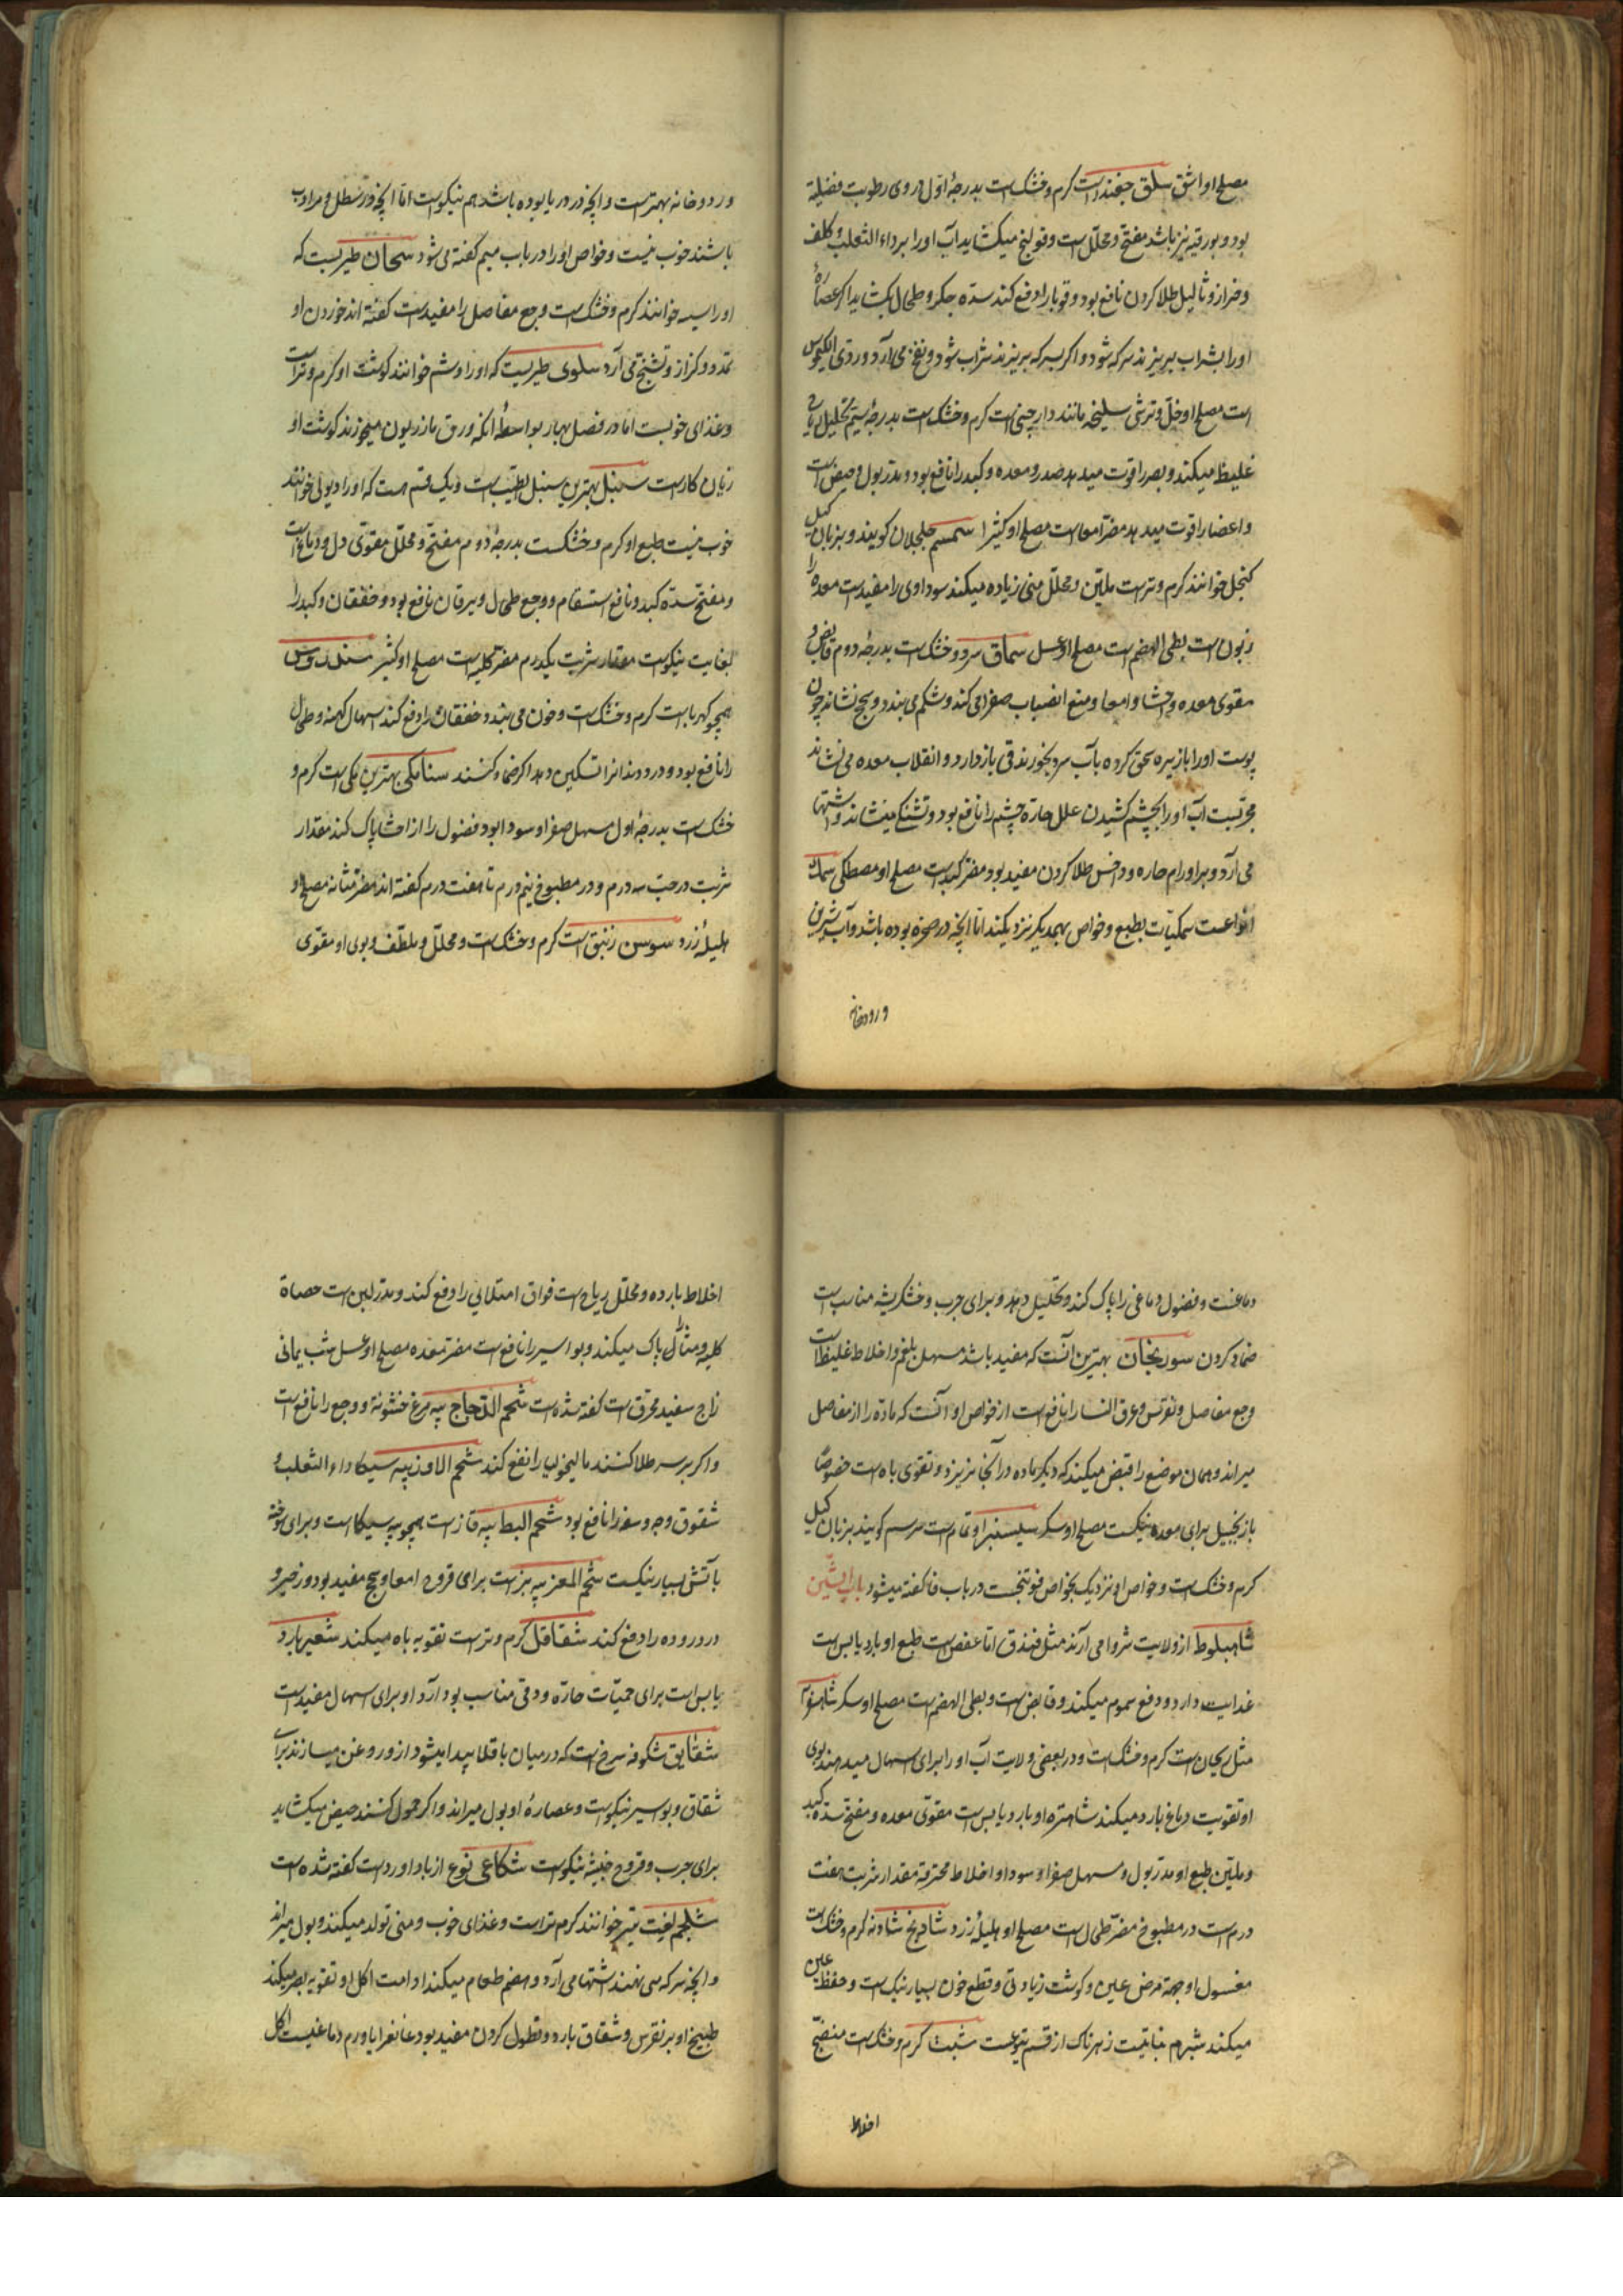 مصلح او اشق سلق چغندر است کرم و خشک است بدرجهٔ اوّل در وی رطوبت فضلیة
بود و بورقیه نیز باشد مفتح و محلّل است و قولنج میکشاید آب او را بر داء الثعلب و کلف
و خراز و ثالیل طلا کردن نافع بود و قوبا را دفع کند سدّه جکر و طحال بکشاید اکر عصارهٔ
او را بشراب بریزند سرکه شود و اکر بسرکه بریزند شراب شود و نفخ می آرد و ردی الکیموس
است مصلح او خلّ و ترشی سلیخه مانند دارچینی است کرم و خشک است بدرجهٔ سیّم تحلیل ریاح
غلیظ میکند و بصر را قوت میدهد صدر و معده و کبد را نافع بود و مدرّ بول و حیض است
و اعضا را قوت میدهد مضرّ امعاست مصلح او کثیرا سمسم جلجلان کویند و بزبان کیل
کنجل خوانند کرم و ترست ملیّن و محلّل منی زیاده میکند سوداوی را مفیدست معده را
زبون است بطی الهضم است مصلح او عسل سماق سرد و خشک است بدرجهٔ دوم قابض و
مقوی معده و احشا و امعا و منع انصباب صفرا می کند و شکم می بندد و سحج نشاند چون
پوست او را با زیره سحق کرده بآب سرد بخورند قی باز دارد و انقلاب معده می نشاند
مجرّبست آب او را بچشم کشیدن علل حارّه چشم را نافع بود و تشنکی مینشاند و اشتها
می آرد و بر اورام حاره و داحس طلا کردن مفید بود مضر کبد است مصلح او مصطکی سمک
انواعست سمکیّات بطبع و خواص بهمدیکر نزدیکند امّا انچه در صخره بوده باشد و آب شیرین
و رودخانه
و رودخانه بهترست و انچه در دریا بوده باشد هم نیکوست امّا انچه در شطل و مرداب
باشند خوب نیست و خواص او را در باب میم کفته می شود سمحان طیریست که
او را سیسه خوانند کرم و خشک است وجع مفاصل را مفیدست کفته اند خوردن او
تمدد و کزاز و تشنّج می آرد سلوی طیریست که او را وشم خوانند کوشت او کرم و ترست
و غذای خوبست امّا در فصل بهار بواسطهٔ انکه ورق مازریون میخورند کوشت او
زیان کارست سنبل بهترین سنبل الطیّب است و یک قسم است که او را دیولی خوانند
خوب نیست طبع او کرم و خشکست بدرجهٔ دوم مفتح و محلّل مقوّی دل و دماغ است
و مفتح سدّه کبد و نافع استسقا و وجع طحال و یرقان نافع بود و خفقان و کبد را
بغایت نیکوست مقدار شربت یکدرم مضرّ کلیه است مصلح او کثیر سندروس
همچو کهرباست کرم و خشک است و خون می بندد و خفقان را دفع کند اسهال کهنه و طحال
را نافع بود و درد دندانرا تسکین دهد اکر ضماد کنند سنا مکی بهترین مکی است کرم و
خشک است بدرجهٔ اول مسهل صفرا و سودا بود فضول را از احشا پاک کند مقدار
شربت در حبّ سه درم و در مطبوخ پنج درم تا هفت درم کفته اند مضرّ مثانه مصلح او
هلیلهٔ زرد سوسن زنبق است کرم و خشک است و محلّل و ملطّف و بوی او مقوّی
دماغست و فضول دماغی را پاک کند و تحلیل دهد و برای جرب و خشکریشه مناسب است
ضماد کردن سورنجان بهترین آنست که سفید باشد مسهل بلغم و اخلاط غلیظ است
وجع مفاصل و نقرس و عرق النسا را نافع است از خواص او آنست که مادّه را از مفاصل
میراند و همان موضع را قبض میکند که دیکر ماده در آنجا نریزد و تقوی باه است خصوصًا
با زنجبیل برای معده نیکست مصلح او سکر سیسنبر او نمّام است سرسم کویند بزبان کیل
کرم و خشک است و خواص او نزدیک بخواص فوتنجست در باب فا کفته میشود باب الشین
شاهبلوط از ولایت شروا می آرند مثل فندق امّا عفص است طبع او بارد یابس است
غذائیت دارد و دفع سموم میکند و قابض است و بطی الهضم است مصلح او سکر شاهسفرم
مثل ریحان است کرم و خشک است و در بعضی ولایت آب او را برای اسهال میدهند بوی
او تقویت دماغ بارد میکند شاهتره او بارد یابس است مقوّی معده و مفتح سدّه کبد
و ملیّن طبع او مدرّ بول و مسهل صفرا و سودا و اخلاط محترقه مقدار شربت هفت
درم است در مطبوخ مضرّ طحال است مصلح او هلیلهٔ زرد شادنج شادنه کرم و خشک است
مغسول او جهة مرض عین و کوشت زیادتی و قطع خون بسیار نیک است و حفظ عین
میکند شبرم نباتیست زهرناک از قسم یتوعست شبت کرم و خشک است منضج
اخلاط
اخلاط بارده و محلّل ریاح است فواق امتلائی را دفع کند و مدرّ لبن است حصاة
کلیه و مثانه را پاک میکند و بواسیر را نافع است مضرّ معده مصلح او عسل شب یمانی
زاج سفید محرق است کفته شده است شحم الدّجاج پیه مرغ خشونة و وجع را نافع است
و اکر بر سر طلا کنند مالیخولیا را نفع کند شحم الاوز پیه سیکا داء الثعلب و
شقوق وجه و سفه را نافع بود شحم البط پیه قازست همچو پیه سیکا است و برای سوخته
بآتش بسیار نیکست شحم المعز پیه بزست برای قروح امعا و سحج مفید بود و زحیر و
درد روده را دفع کند شقاقل کرم و ترست تقویه باه میکند شعیر بارد
یابس است برای حمیّات حارّه و دقی مناسب بود آرد او برای اسهال مفیدست
شقایق شکوفه سرخ است که در میان باقلا پیدا میشود از و روغن میسازند برای
شقاق و بواسیر نیکوست و عصارهٔ او بول میراند و اکر حمول کنند حیض میکشاید
برای جرب و قروح خبیثه نیکوست شکاعی نوع از باداوردست کفته شده است
شلجم لفت نیز خوانند کرم تر است و غذای خوب و منی تولد میکند و بول میراند
و انچه سرکه می نهند اشتها می آرد و هضم طعام میکند ادامت اکل او تقویه بصر میکند
طبیخ او بر نقرس و شقاق بارد و نطول کردن مفید بود غانغرایا ورم دماغیست اکل